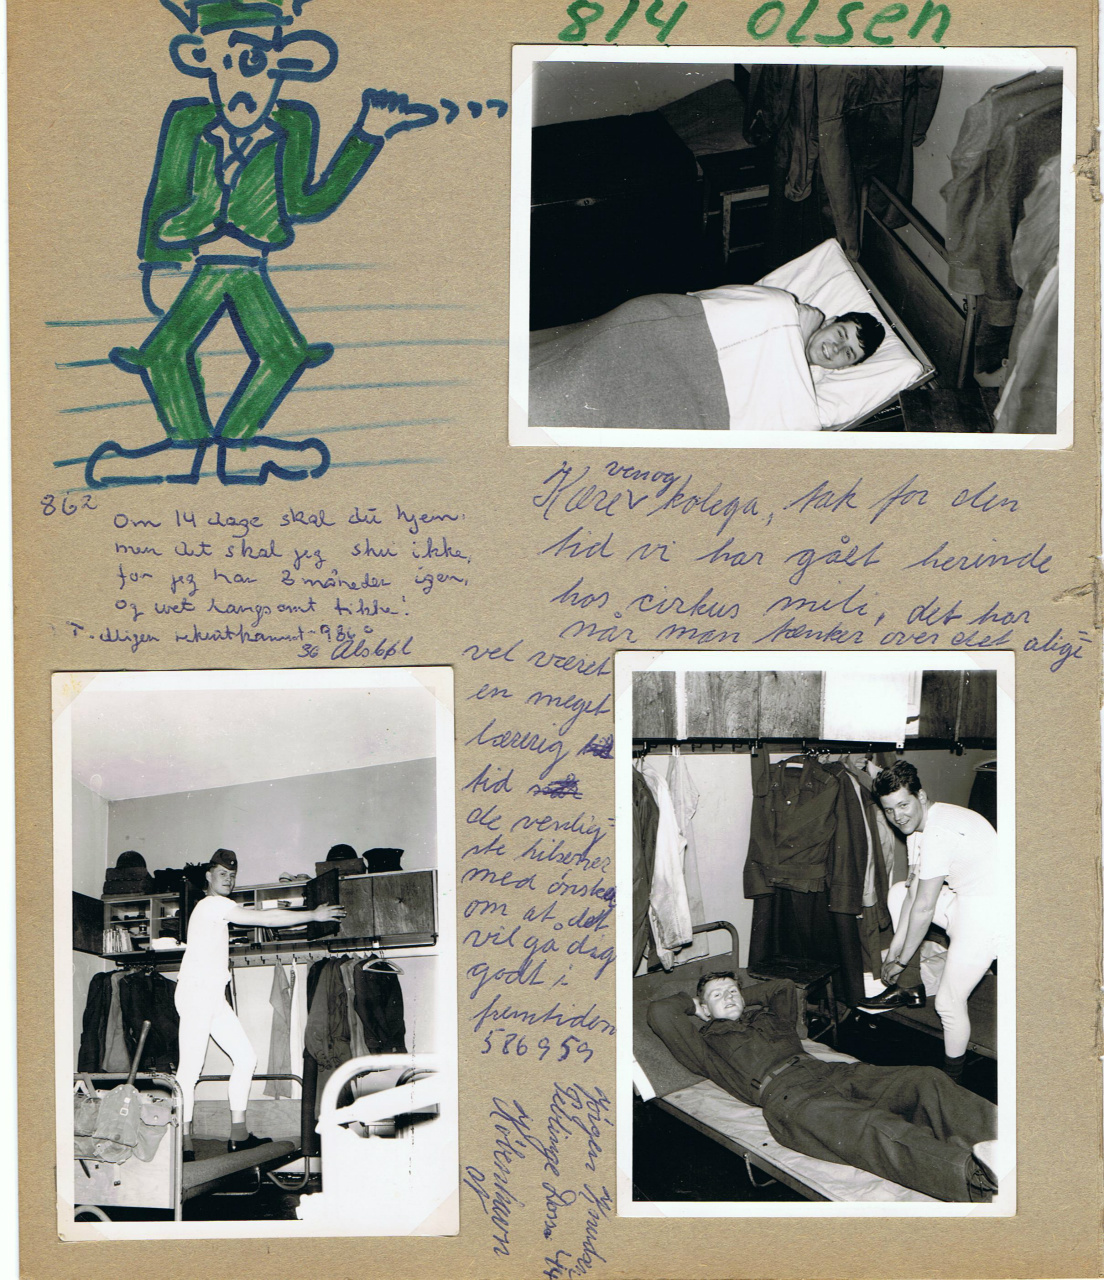 814 olsen
862
Om 14 dage skal du hjem
men det skal jeg shu ikke,
for jeg har 8 måneder igen,
og wet langsomt tikke!
T. Mljen rekrutkammt 986
36 Alsbøl
Kære ven og kolega, tak for den
tid vi har gået herinde
hos cirkus mili, det har
når man tænker over det alige
vel været
en meget
lærerig
tid
de venlig-
ste hilsener
med ønske
om at det
vil gå dig
godt i
fremtiden
586959
Jørgen Knudsen
44
København